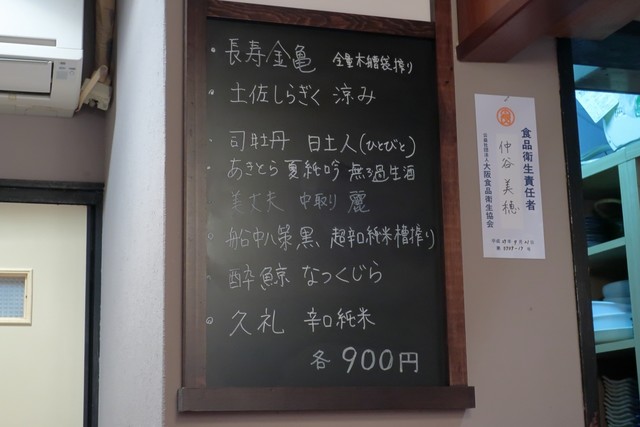 ・長寿金亀 全量木槽袋搾り
・土佐しらぎく 涼み
・司牡丹 日土人(ひとびと)
・あきとら 夏純吟 無ろ過生酒
美丈夫 中取り 麗
・船中八策 黒 超辛純米槽搾り
・酔鯨 なつくじら
・久礼 辛口純米
各900円
食品衛生責任者
仲谷美穂
公益社団法人大阪食品衛生協会